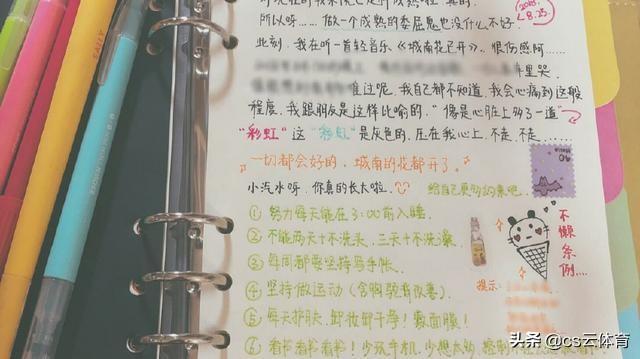 所以呀……做一个成熟的委屈感也没什么不好.
2019.
8.25.
此刻,我在听一首轻音乐《城南花已开》.很伤感阿……
车里哭.
难过呢.我自己都不知道,我会心痛到这般
程度.我跟朋友是这样比喻的."像是心脏上多了一道"
"彩虹"这"彩虹"是灰色的.压在我心上,不走.不走……
一切都会好的.城南的花都开了。
小汽水呀.你真的长大啦.
给自己更好的未来吧.
①努力每天能在3:00前入睡.
②不能两天十不洗头.三天十不洗澡.
③每周都要坚持写手帐.
④坚持做运动(含胸驼背改善).
⑤每天护肤.卸妆卸干净!敷面膜!
⑥看书看书看书!少玩手机.少想太多.
不懒条例……
提示:
头条 @cs云体育